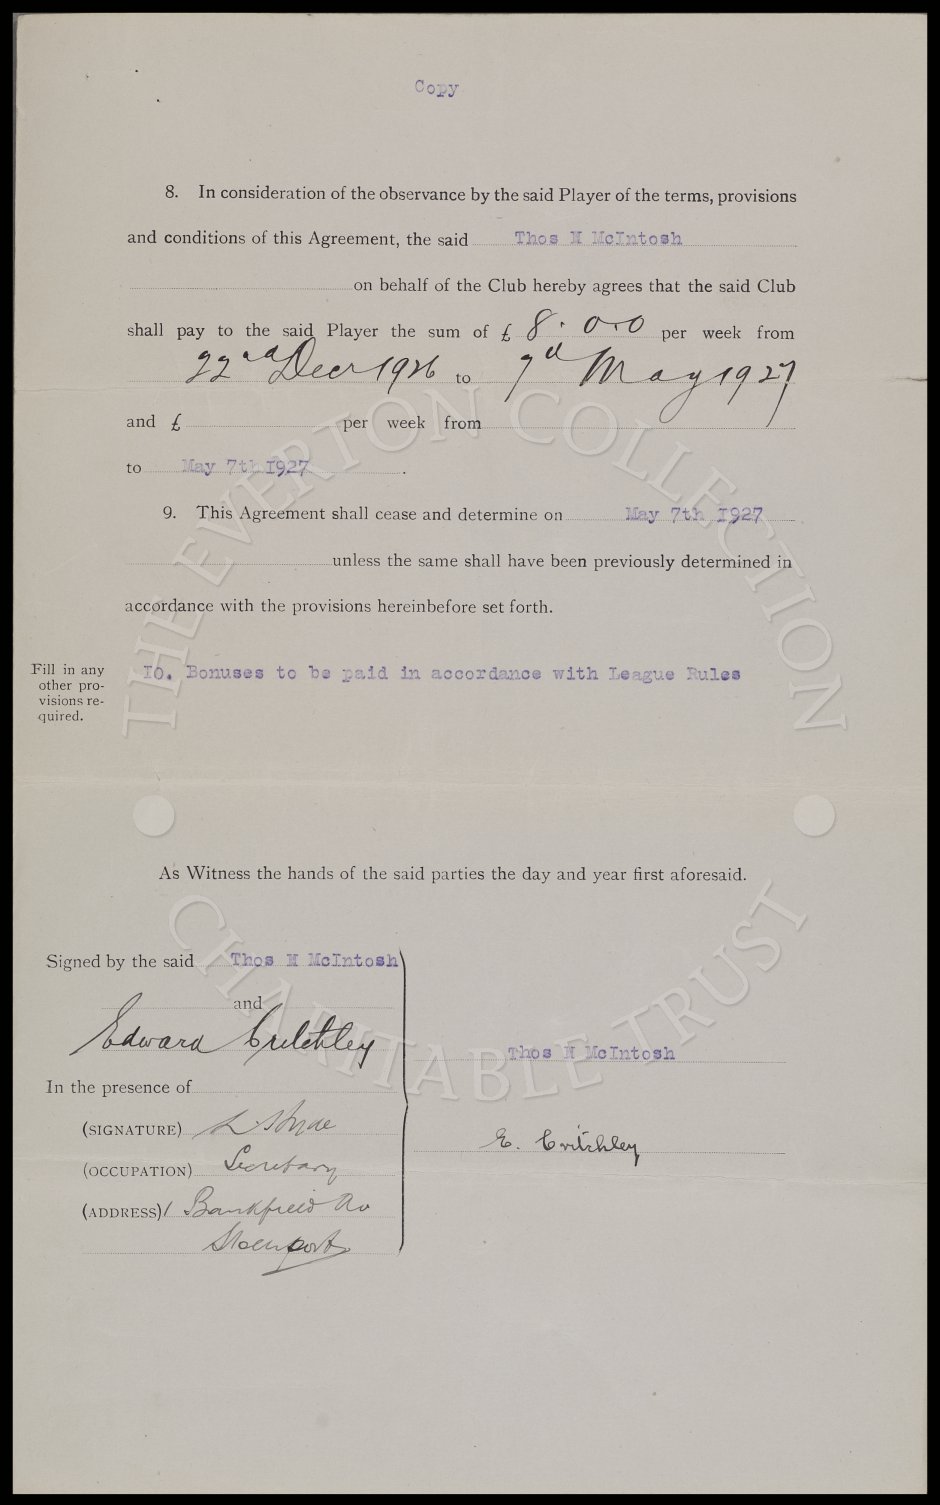 Copy
8. In consideration of the observance by the said Player of the terms, provisions
and conditions of this Agreement, the said Thos H McIntosh
on behalf of the Club hereby agrees that the said Club
shall pay to the said Player the sum of £ 8.0.0 per week from
22nd Decr 1926 to 7th May 1927
and £ per week from
to May 7th 1927.
9. This Agreement shall cease and determine on May 7th 1927
unless the same shall have been previously determined in
accordance with the provisions hereinbefore set forth.
Fill in any
other pro-
visions re-
quired.
10. Bonuses to be paid in accordance with League Rules
As Witness the hands of the said parties the day and year first aforesaid.
Signed by the said Thos H McIntosh
and
Edward Critchley
In the presence of
(SIGNATURE)
(OCCUPATION) Secretary
(ADDRESS) Bankfield Av
Stockport
Thos H McIntosh
E. Critchley
THE EVERTON COLLECTION
CHARITABLE TRUST